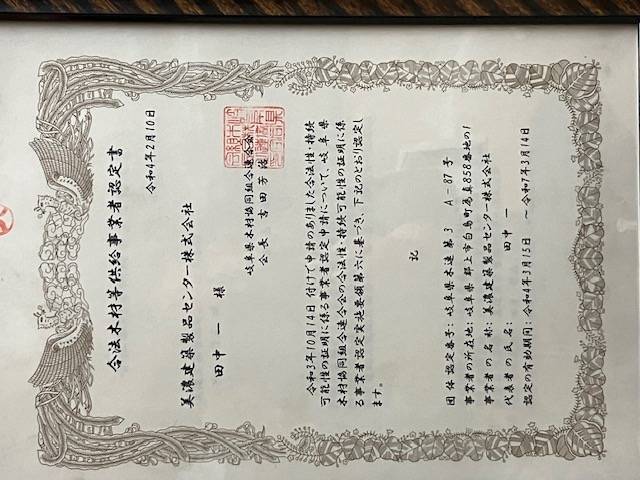 合法木材等供給事業者認定書
令和4年2月10日
美濃建築製品センター株式会社
田中 一 様
岐阜県木材協同組合連合会
会長 吉田芳治
令和3年10月14日付けで申請のありました合法性・持続
可能性の証明に係る事業者認定申請について、岐阜県
木材協同組合連合会の合法性・持続可能性の証明に係
る事業者認定実施要領第六に基づき、下記のとおり認定し
ます。
記
団体認定番号: 岐阜県木連第3 A-87号
事業者の所在地: 岐阜県郡上市白鳥町為真858番地の1
事業者の名称: 美濃建築製品センター株式会社
代表者の氏名: 田中 一
認定の有効期間: 令和4年3月15日 ～令和7年3月14日